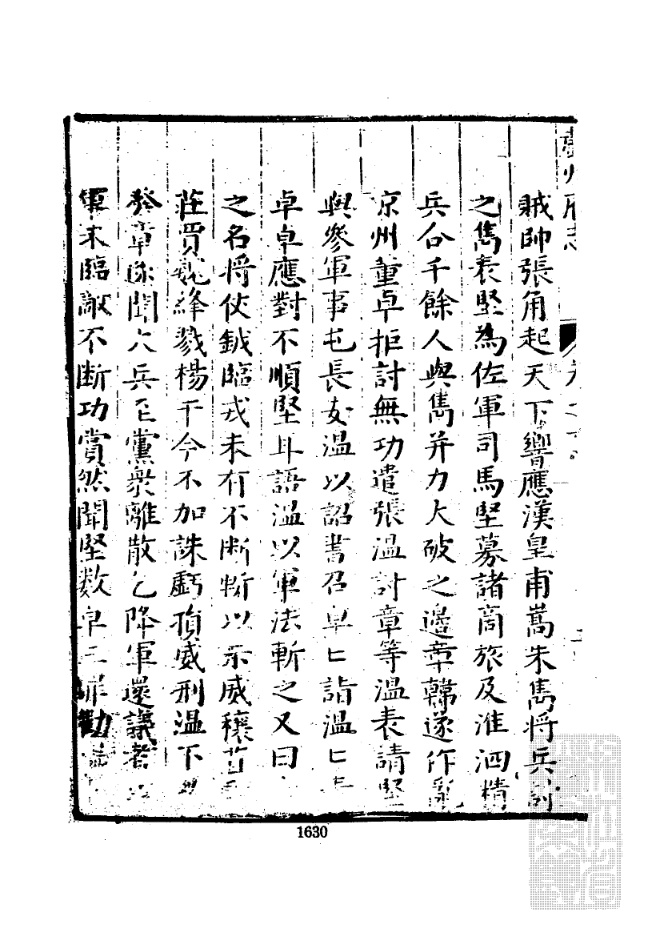 州府志 卷之
賊帥張角起天下響應漢皇甫嵩朱雋將兵討
之雋表堅為佐軍司馬堅募諸商旅及淮泗精
兵合千餘人與雋并力大破之邊章韓遂作亂
凉州董卓拒討無功遣張溫討章等溫表請堅
與參軍事屯長安溫以詔書召卓匕詣溫匕
卓卓應對不順堅耳語溫以軍法斬之又曰
之名將仗鉞臨戎未有不斷斬以示威穰苴
莊賈魏絳戮楊干今不加誅虧損威刑溫不
發章遂聞大兵至黨衆離散乞降軍還議者
軍未臨敵不斷功賞然聞堅數卓三罪勸
1630